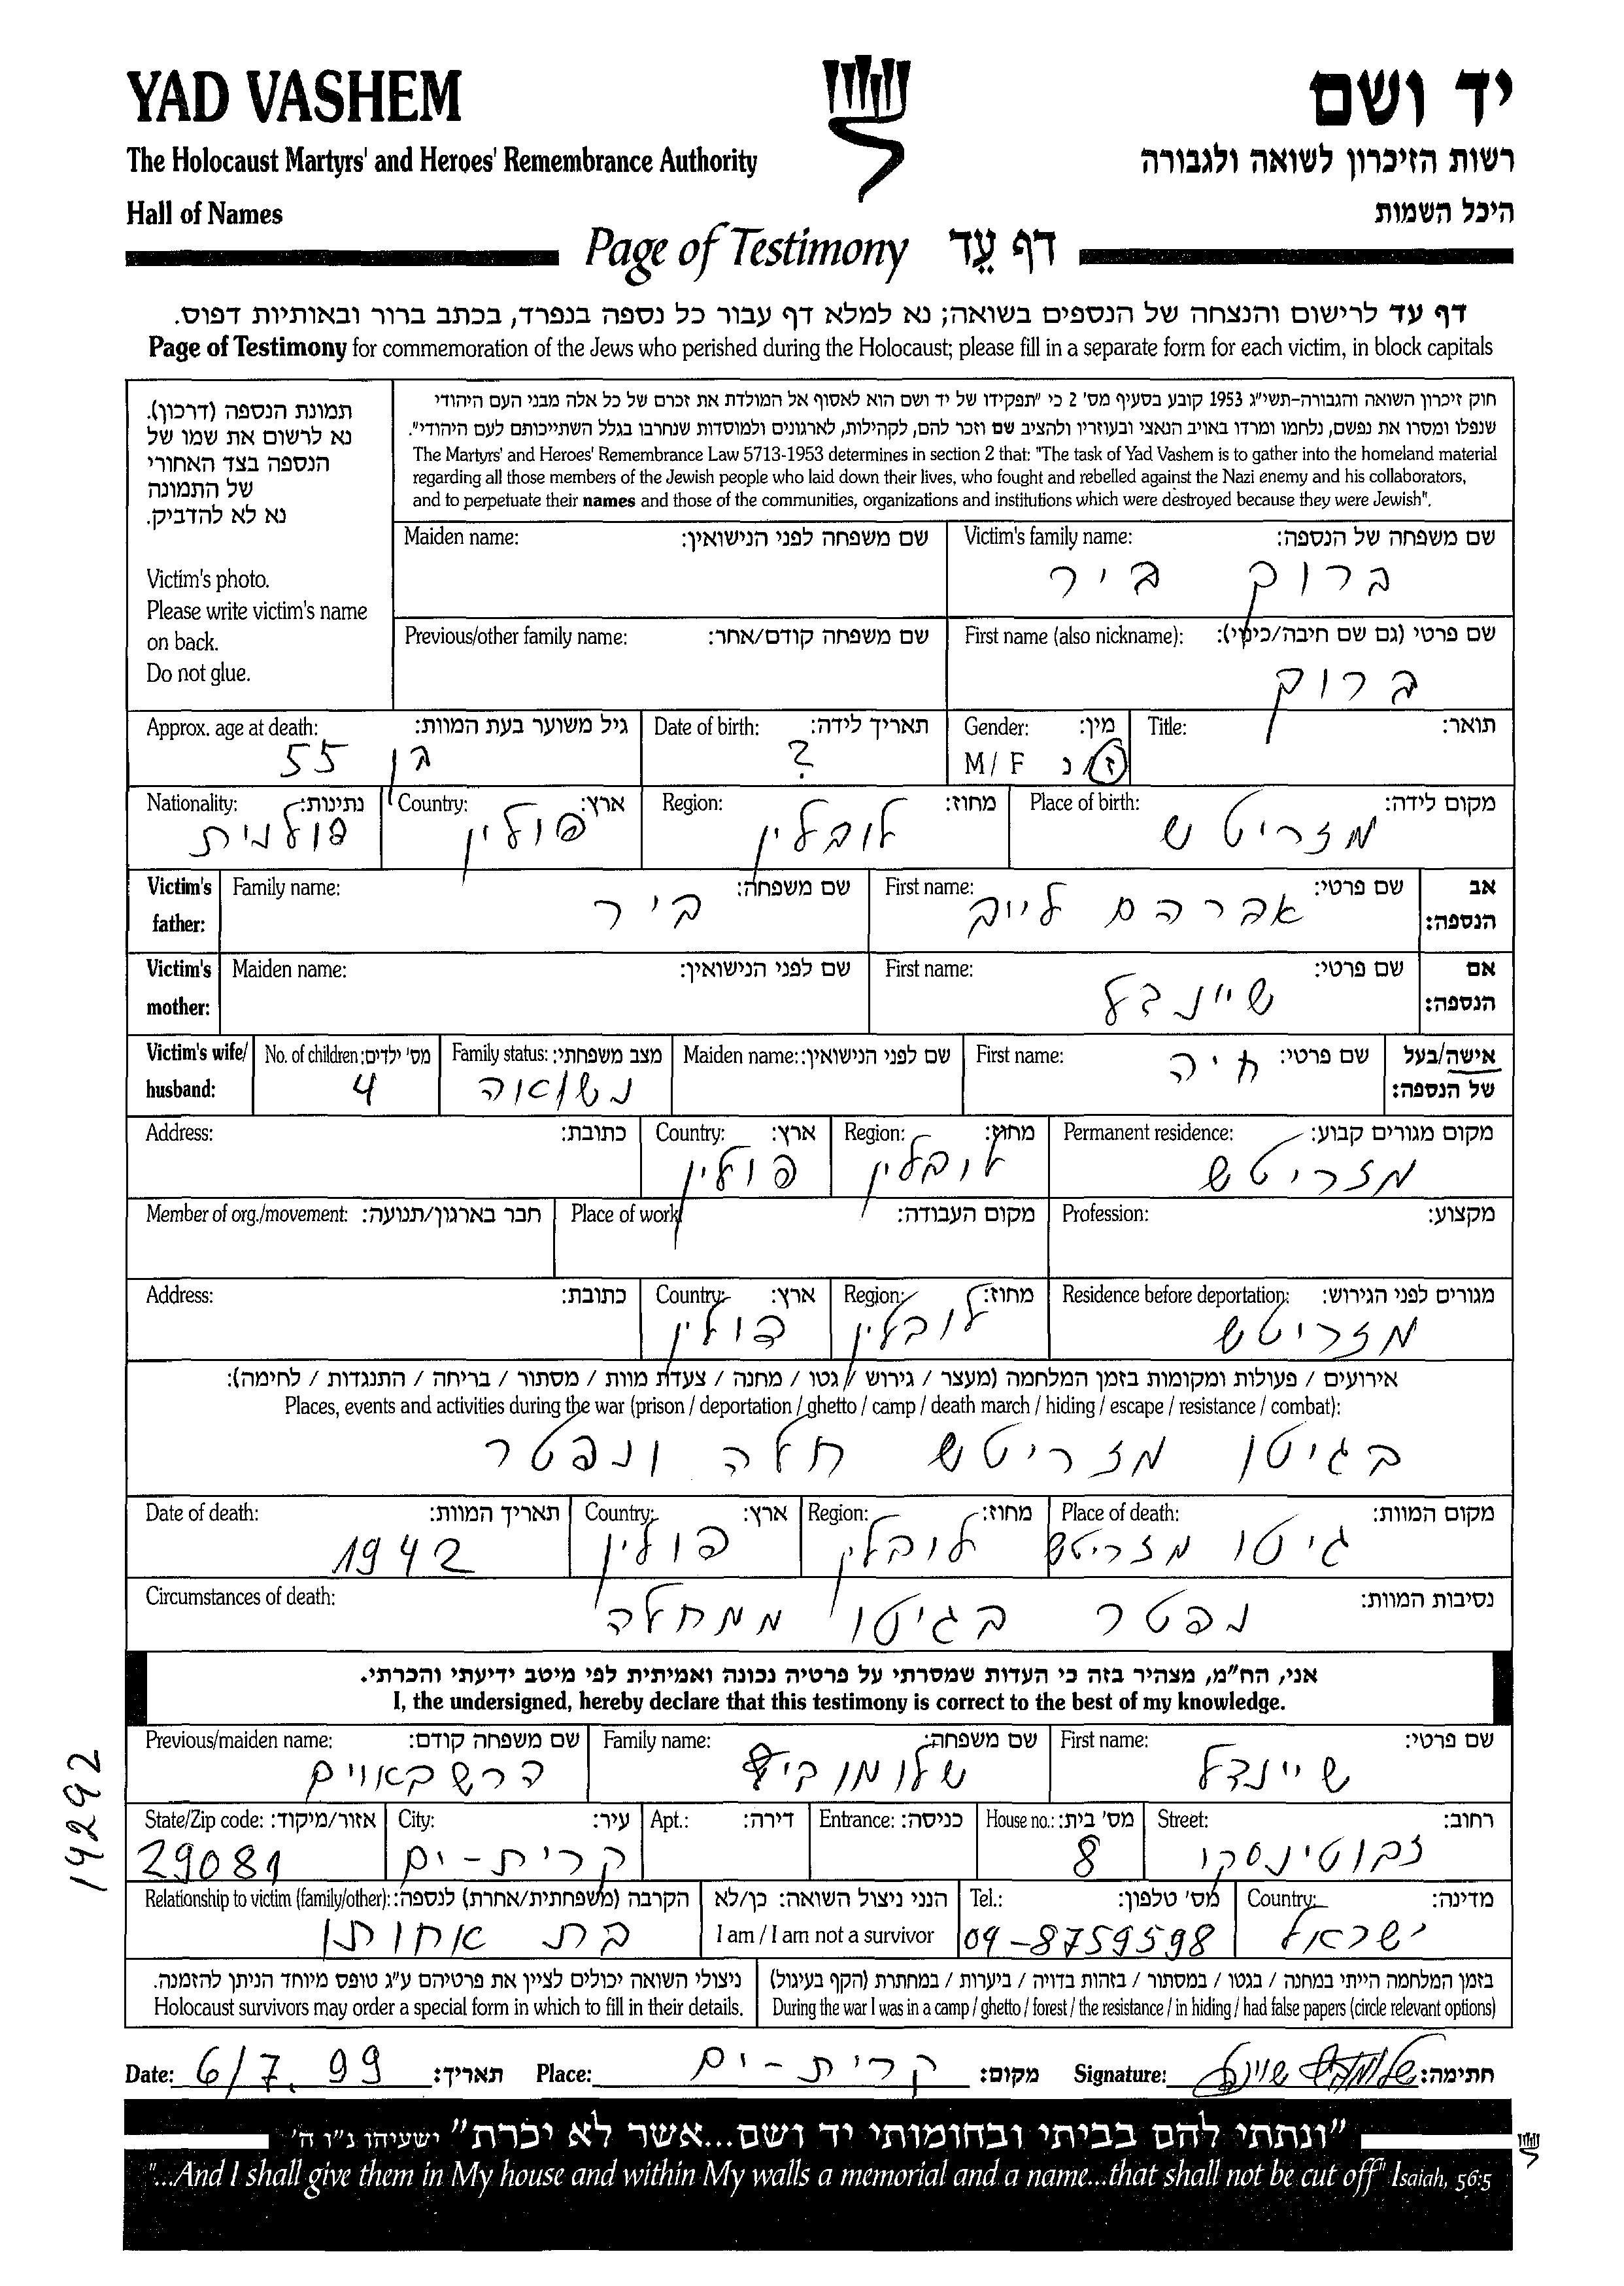 YAD VASHEM
יד ושם
The Holocaust Martyrs' and Heroes' Remembrance Authority
רשות הזיכרון לשואה ולגבורה
Hall of Names
היכל השמות
Page of Testimony דף עֵד
דף עד לרישום והנצחה של הנספים בשואה; נא למלא דף עבור כל נספה בנפרד, בכתב ברור ובאותיות דפוס.
Page of Testimony for commemoration of the Jews who perished during the Holocaust; please fill in a separate form for each victim, in block capitals
תמונת הנספה (דרכון).
נא לרשום את שמו של
הנספה בצד האחורי
של התמונה
נא לא להדביק.
Victim's photo.
Please write victim's name
on back.
Do not glue.
חוק זיכרון השואה והגבורה-תשי"ג 1953 קובע בסעיף מס' 2 כי "תפקידו של יד ושם הוא לאסוף אל המולדת את זכרם של כל אלה מבני העם היהודי
שנפלו ומסרו את נפשם, נלחמו ומרדו באויב הנאצי ובעוזריו ולהציב שם וזכר להם, לקהילות, לארגונים ולמוסדות שנחרבו בגלל השתייכותם לעם היהודי".
The Martyrs' and Heroes' Remembrance Law 5713-1953 determines in section 2 that: "The task of Yad Vashem is to gather into the homeland material
regarding all those members of the Jewish people who laid down their lives, who fought and rebelled against the Nazi enemy and his collaborators,
and to perpetuate their names and those of the communities, organizations and institutions which were destroyed because they were Jewish".
Maiden name: שם משפחה לפני הנישואין: Victim's family name: שם משפחה של הנספה:
ברוך ביר
Previous/other family name: שם משפחה קודם/אחר: First name (also nickname): שם פרטי (גם שם חיבה/כינוי):
ברוך
Approx. age at death: גיל משוער בעת המוות: Date of birth: תאריך לידה: Gender: מין: Title: תואר:
בן 55 ? M / F ז/נ
Nationality: נתינות: Country: ארץ: Region: מחוז: Place of birth: מקום לידה:
פולנית פולין לובלין מזריטש
Victim's father: Family name: שם משפחה: First name: שם פרטי: אב הנספה:
ביר אברהם לייב
Victim's mother: Maiden name: שם לפני הנישואין: First name: שם פרטי: אם הנספה:
שיינדל
Victim's wife/ husband: No. of children: מס' ילדים: Family status: מצב משפחתי: Maiden name: שם לפני הנישואין: First name: שם פרטי: אישה/בעל של הנספה:
4 נשואה חיה
Address: כתובת: Country: ארץ: Region: מחוז: Permanent residence: מקום מגורים קבוע:
פולין לובלין מזריטש
Member of org./movement: חבר בארגון/תנועה: Place of work מקום העבודה: Profession: מקצוע:
Address: כתובת: Country: ארץ: Region: מחוז: Residence before deportation: מגורים לפני הגירוש:
פולין לובלין מזריטש
אירועים / פעולות ומקומות בזמן המלחמה (מעצר / גירוש / גטו / מחנה / צעדת מוות / מסתור / בריחה / התנגדות / לחימה):
Places, events and activities during the war (prison / deportation / ghetto / camp / death march / hiding / escape / resistance / combat):
בגיטו מזריטש חלה ונפטר
Date of death: תאריך המוות: Country: ארץ: Region: מחוז: Place of death: מקום המוות:
1942 פולין לובלין גיטו מזריטש
Circumstances of death: נסיבות המוות:
נפטר בגיטו ממחלה
אני, הח"מ, מצהיר בזה כי העדות שמסרתי על פרטיה נכונה ואמיתית לפי מיטב ידיעתי והכרתי.
I, the undersigned, hereby declare that this testimony is correct to the best of my knowledge.
Previous/maiden name: שם משפחה קודם: Family name: שם משפחה: First name: שם פרטי:
הרשבאוים שיינדל
State/Zip code: אזור/מיקוד: City: עיר: Apt.: דירה: Entrance: כניסה: House no.: מס' בית: Street: רחוב:
29081 קרית-ים 8 זבוטינסקי
Relationship to victim (family/other): הקרבה (משפחתית/אחרת) לנספה: הנני ניצול השואה: כן/לא Tel.: מס' טלפון: Country: מדינה:
בת אחותו I am / I am not a survivor 04-8759598 ישראל
ניצולי השואה יכולים לציין את פרטיהם ע"ג טופס מיוחד הניתן להזמנה. בזמן המלחמה הייתי במחנה / בגטו / במסתור / בזהות בדויה / ביערות / במחתרת (הקף בעיגול)
Holocaust survivors may order a special form in which to fill in their details. During the war I was in a camp / ghetto / forest / the resistance / in hiding / had false papers (circle relevant options)
Date: 6/7.99 תאריך: Place: קרית-ים מקום: Signature: חתימה:
"ונתתי להם בביתי ובחומותי יד ושם...אשר לא יכרת" ישעיהו נ"ו ה'
"...And I shall give them in My house and within My walls a memorial and a name...that shall not be cut off" Isaiah, 56:5
14292